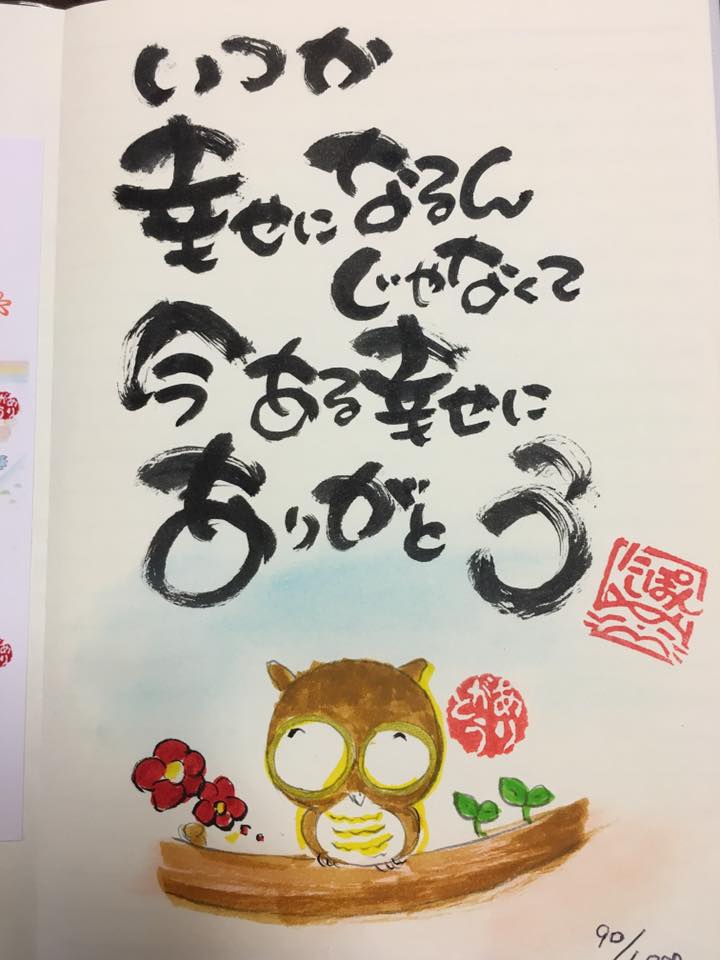 いつか
幸せになるん
じゃなくて
今ある幸せに
ありがとう
ありがとう
90/1000